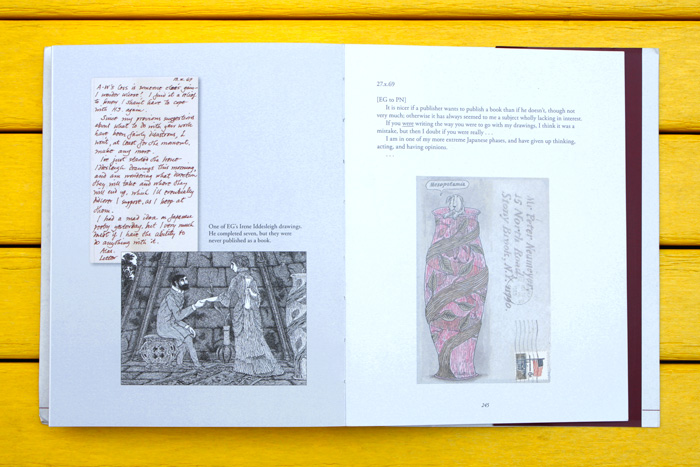 10.x.69
A-W's loss is someone else's gain-
I wonder whose? I find it a relief
to know I shan't have to cope
with H.J. again.
Since my previous suggestions
about what to do with your work
have been fairly disastrous, I
won't, at least for the moment,
make any more.
I've just started the Irene
Iddesleigh drawings this morning
and am wondering what direction
they will take and where they
will end up, which I'll eventually
discover I suppose, as I keep at
them.
I had a mad idea on Japanese
poetry yesterday, but I very much
doubt if I have the ability to
do anything with it.
Later
One of EG's Irene Iddesleigh drawings.
He completed seven, but they were
never published as a book.
27.x.69
[EG to PN]
It is nicer if a publisher wants to publish a book than if he doesn't, though not
very much; otherwise it has always seemed to me a subject wholly lacking in interest.
If you were writing the way you were to go with my drawings, I think it was a
mistake, but then I doubt if you were really . . .
I am in one of my more extreme Japanese phases, and have given up thinking,
acting, and having opinions.
. . .
Mesopotamia
Mr Peter Neumeyer
12 North Road
Stony Brook, N.Y. 11790
245